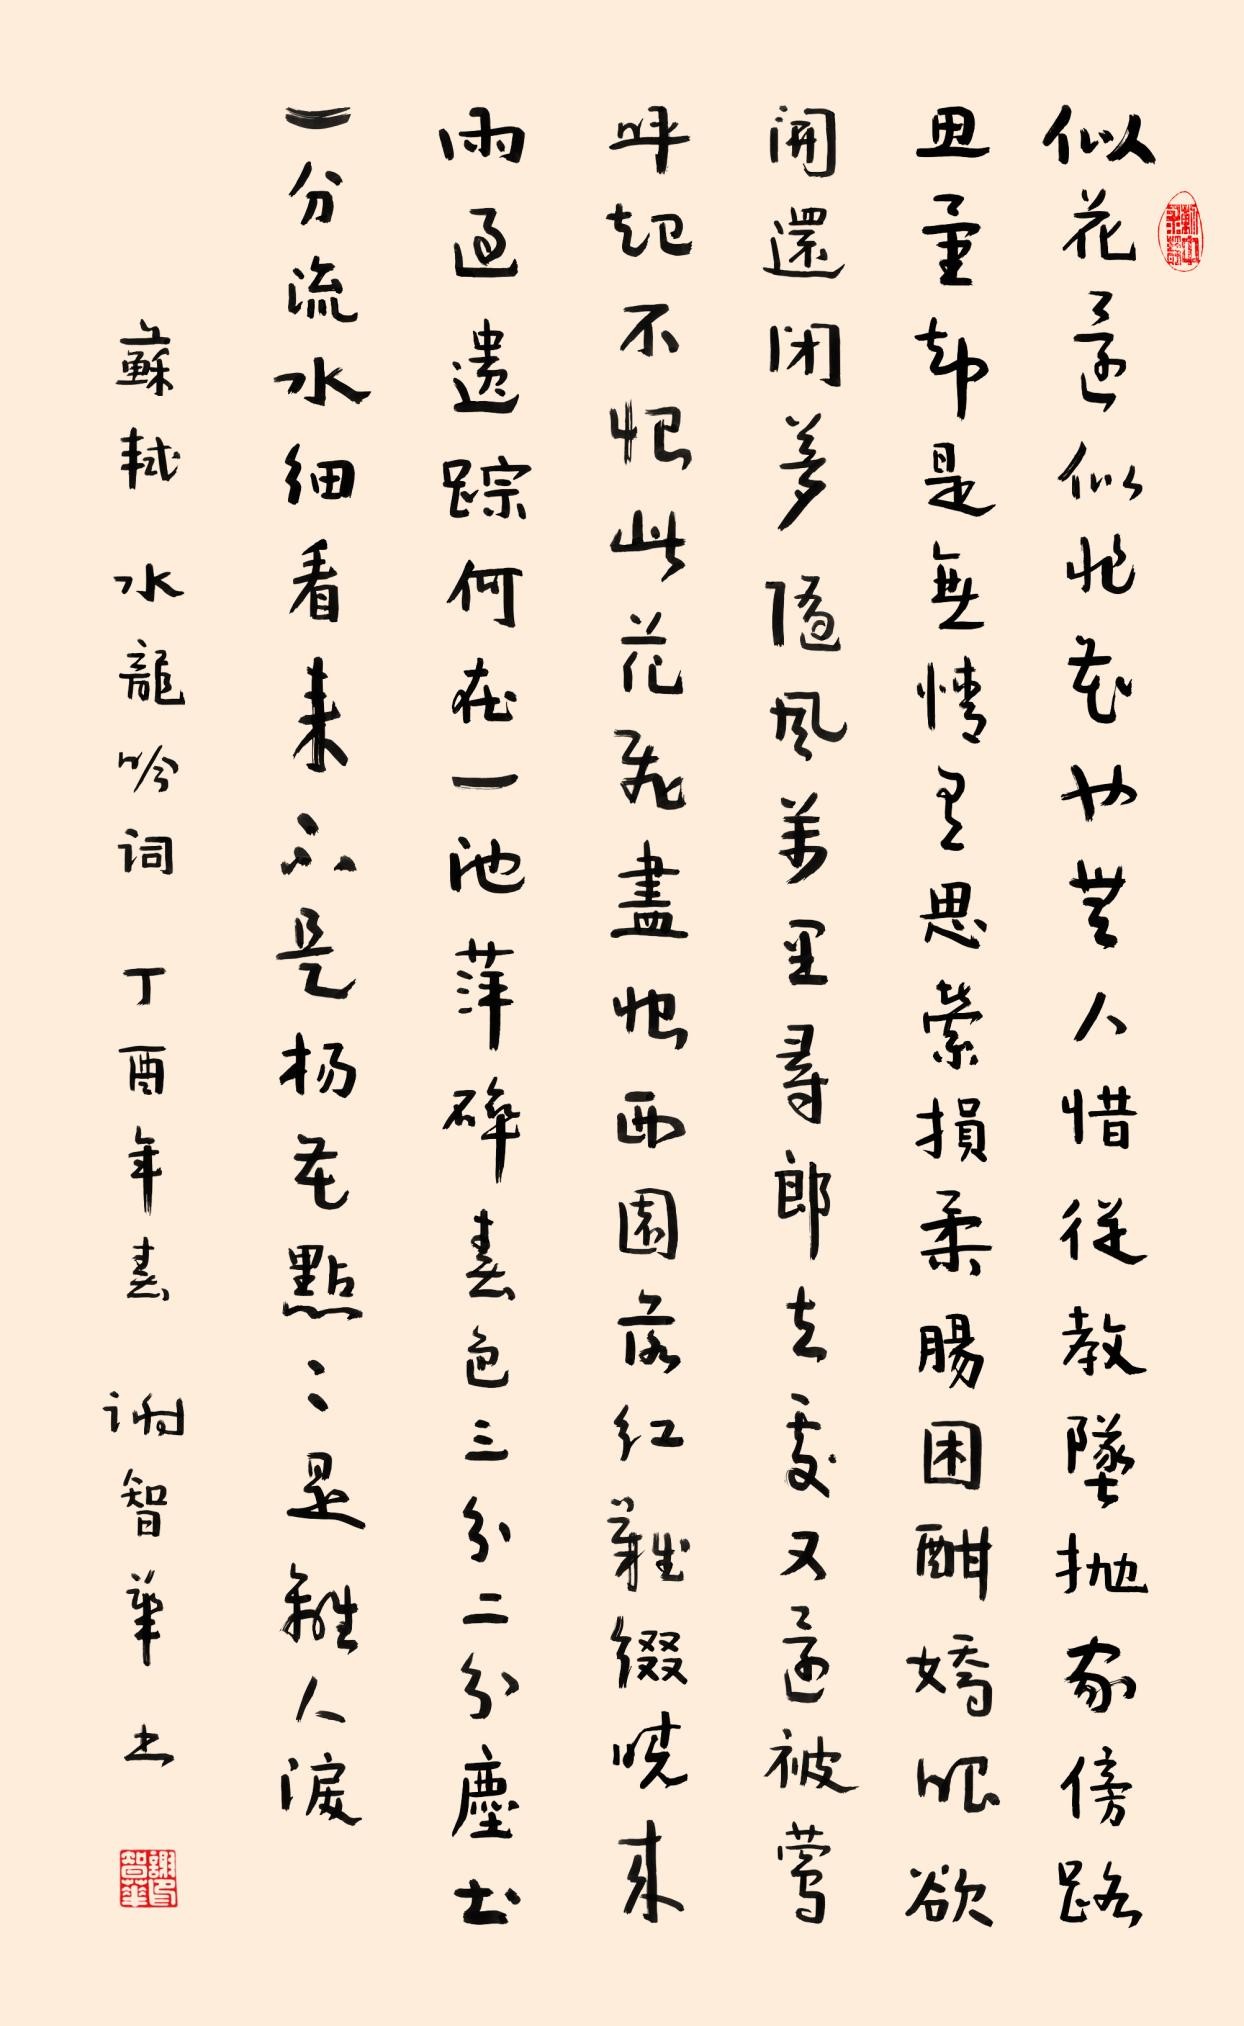 似花還似非花也無人惜從教墜抛家傍路
思量却是無情有思縈損柔腸困酣嬌眼欲
開還閉夢隨風萬里尋郎去處又還被鶯
呼起不恨此花飛盡恨西園落紅難綴曉來
雨過遺踪何在一池萍碎春色三分二分塵土
一分流水細看來不是杨花點〻是離人淚
蘇軾 水龍吟词 丁酉年春 谢智華书
謝智華印